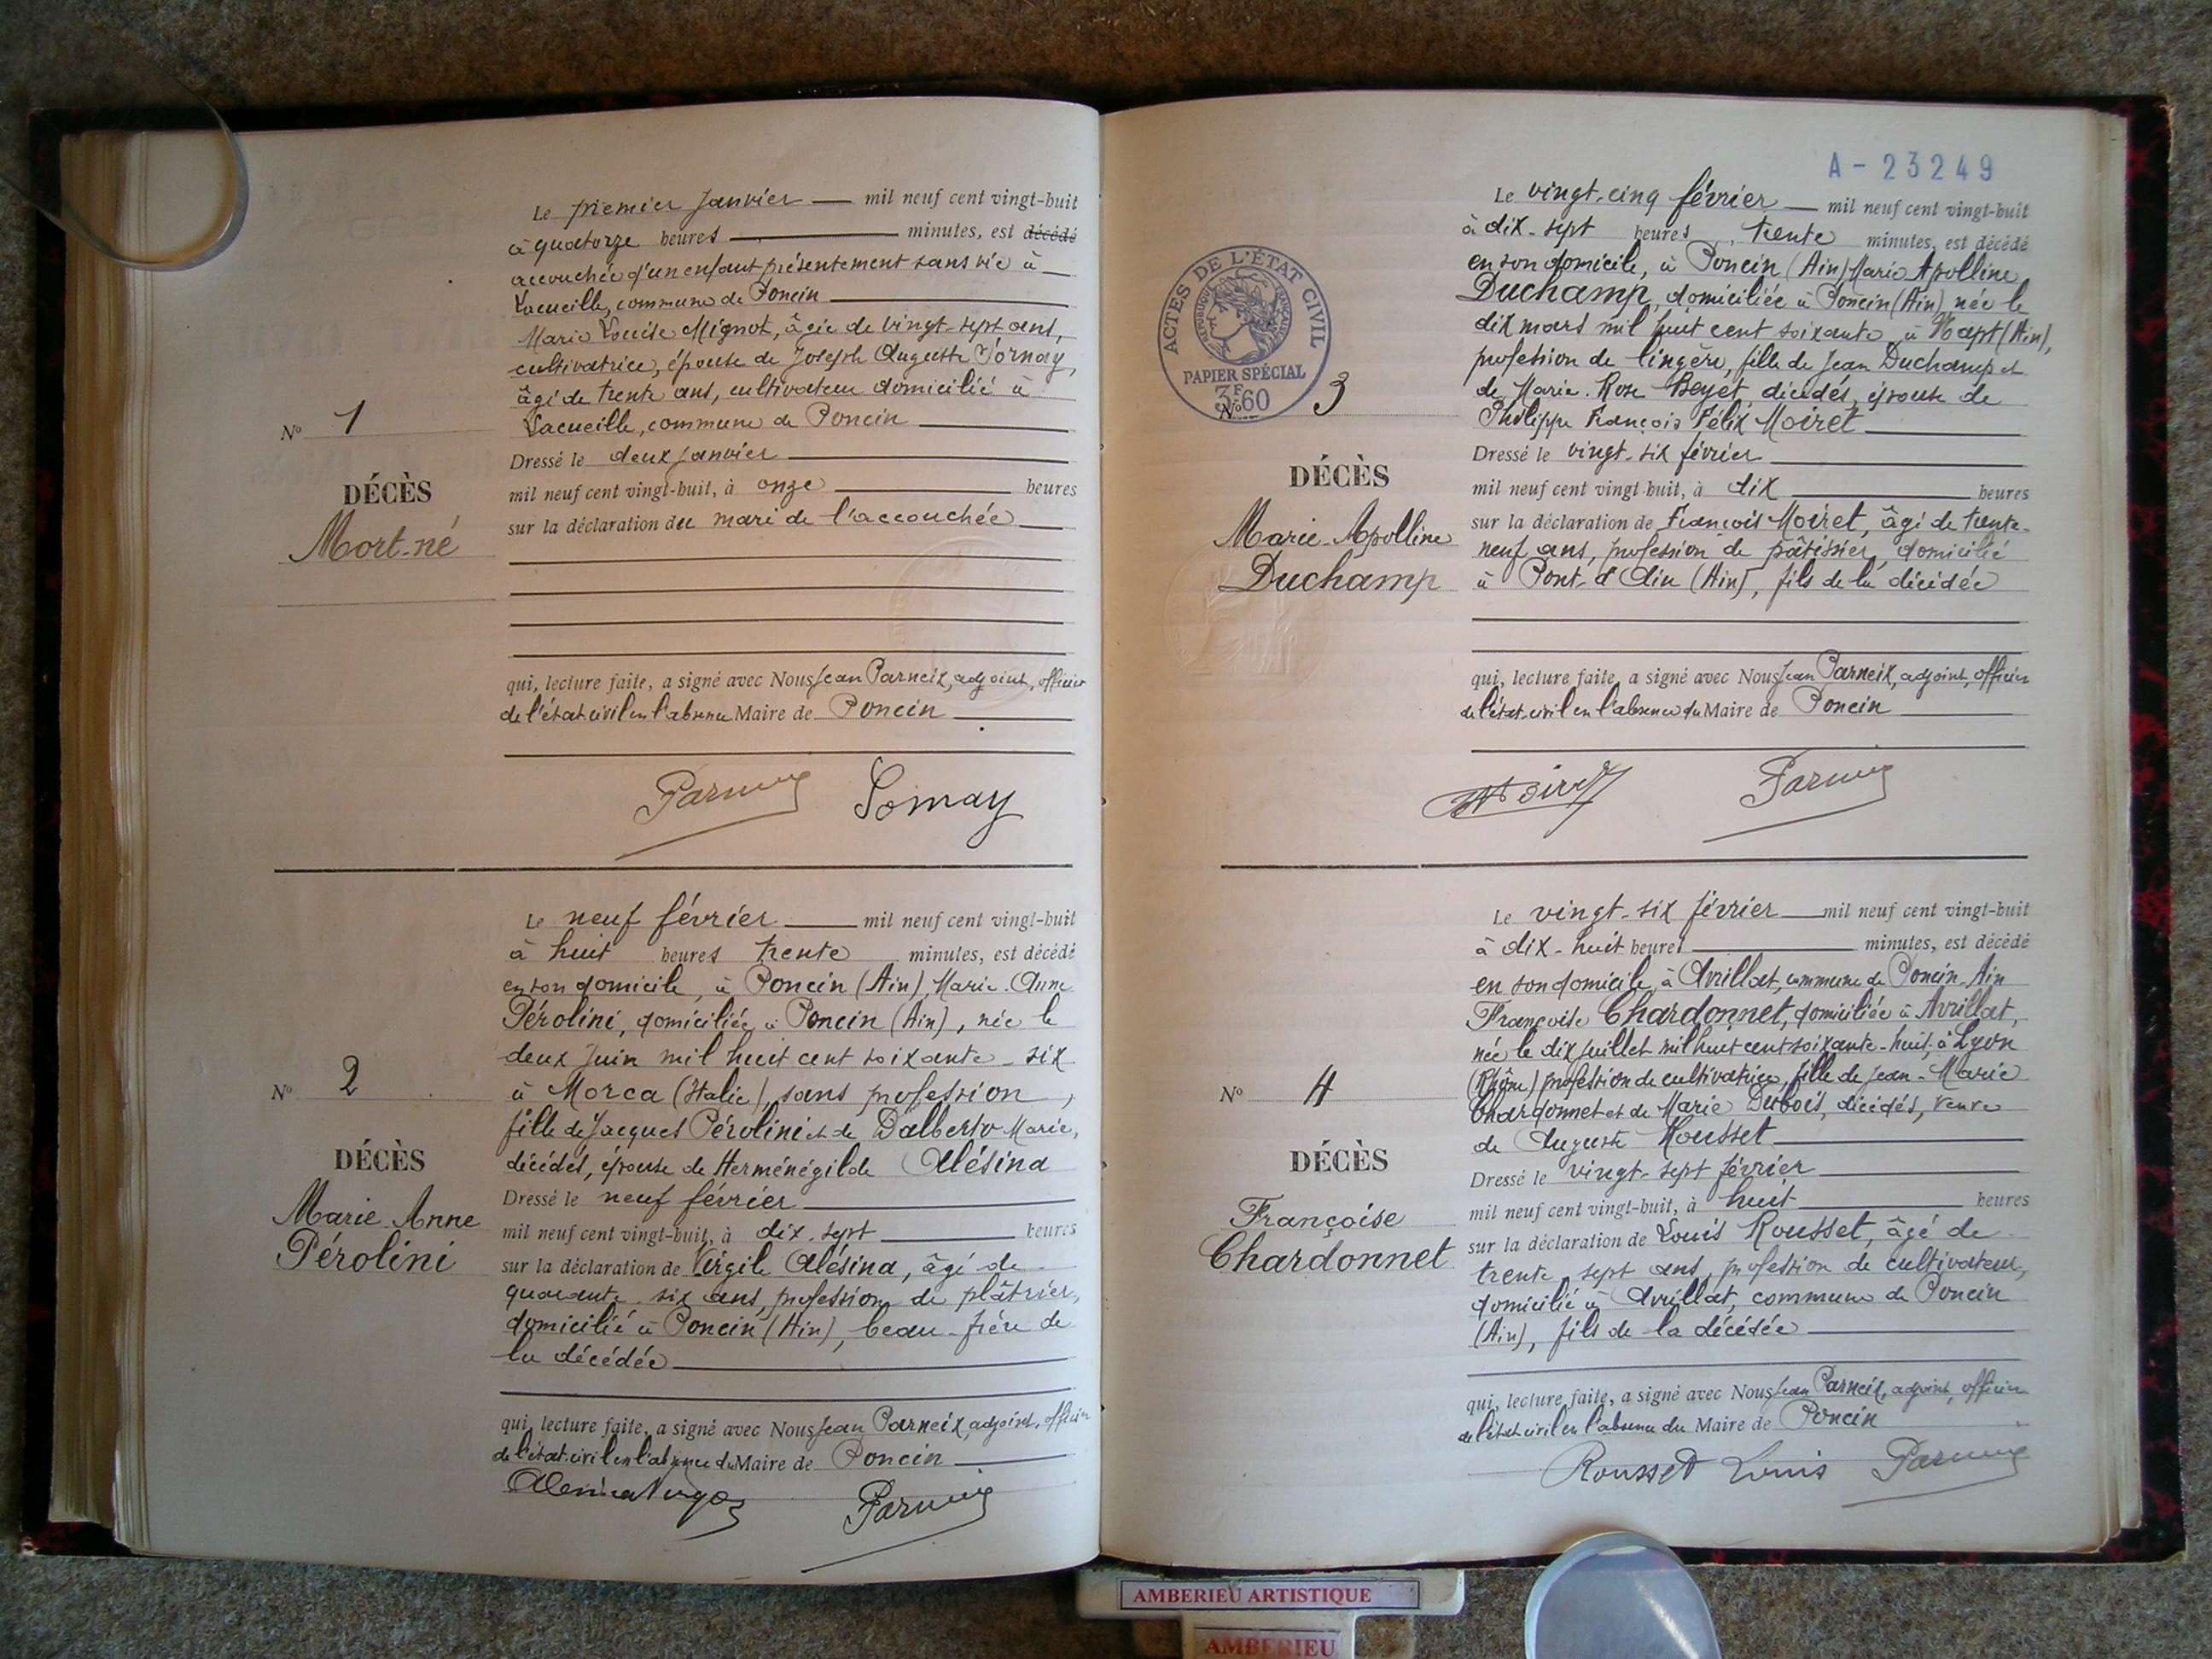 Le premier Janvier mil neuf cent vingt-huit
à quatorze heures minutes, est décédé
accouchée d'un enfant présentement sans vie à
Lacueille, commune de Poncin
Marie Louise Mignot, âgée de vingt-sept ans,
cultivatrice, épouse de Joseph Auguste
âgé de trente ans, cultivateur domicilié à
Lacueille, commune de Poncin
Nº 1
Dressé le deux Janvier
DÉCÈS
mil neuf cent vingt-huit, à onze heures
Mort-né
sur la déclaration du mari de l'accouchée
qui, lecture faite, a signé avec Nous Jean Parneix, adjoint, officier
de l'état civil en l'absence Maire de Poncin
Le neuf février mil neuf cent vingt-huit
à huit heures trente minutes, est décédé
en son domicile, à Poncin (Ain), Marie-Anne
Pérolini, domiciliée à Poncin (Ain), née le
deux Juin mil huit cent soixante-six
Nº 2
à Morca (Italie), sans profession,
fille de Jacques Pérolini et de Dalberto Marie,
DÉCÈS
décédés, épouse de Herménégilde Alésina
Dressé le neuf février
Marie-Anne
Pérolini
mil neuf cent vingt-huit, à dix-sept heures
sur la déclaration de Virgile Alésina, âgé de
quarante-six ans, profession de plâtrier,
domicilié à Poncin (Ain), beau-frère de
la décédée
qui, lecture faite, a signé avec Nous Jean Parneix, adjoint, officier
de l'état civil en l'absence du Maire de Poncin
A-23249
Le vingt-cinq février mil neuf cent vingt-huit
à dix-sept heures, trente minutes, est décédé
en son domicile, à Poncin (Ain) Marie Apolline
Duchamp, domiciliée à Poncin (Ain) née le
dix mars mil huit cent soixante, à Napt (Ain),
profession de lingère, fille de Jean Duchamp et
de Marie-Rose Beyet, décédés, épouse de
Philippe François Félix Moiret
ACTES DE L'ÉTAT CIVIL
RÉPUBLIQUE FRANÇAISE
PAPIER SPÉCIAL
3F60
Nº 3
Dressé le vingt-six février
DÉCÈS
mil neuf cent vingt-huit, à dix heures
Marie-Apolline
Duchamp
sur la déclaration de François Moiret, âgé de trente-
neuf ans, profession de pâtissier, domicilié
à Pont-d'Ain (Ain), fils de la décédée
qui, lecture faite, a signé avec Nous Jean Parneix, adjoint, officier
de l'état-civil en l'absence du Maire de Poncin
Le vingt-six février mil neuf cent vingt-huit
à dix-huit heures minutes, est décédé
en son domicile, à Avrillat, commune de Poncin-Ain
Françoise Chardonnet, domiciliée à Avrillat,
née le dix Juillet mil huit cent soixante-huit, à Lyon
(Rhône) profession de cultivatrice, fille de Jean-Marie
Chardonnet et de Marie Dubois, décédés, veuve
de Auguste Rousset
Nº 4
Dressé le vingt-sept février
DÉCÈS
mil neuf cent vingt-huit, à huit heures
Françoise
Chardonnet
sur la déclaration de Louis Rousset, âgé de
trente-sept ans, profession de cultivateur,
domicilié à Avrillat, commune de Poncin
(Ain), fils de la décédée
qui, lecture faite, a signé avec Nous Jean Parneix, adjoint, officier
de l'état civil en l'absence du Maire de Poncin
Rousset Louis
AMBERIEU ARTISTIQUE
AMBERIEU